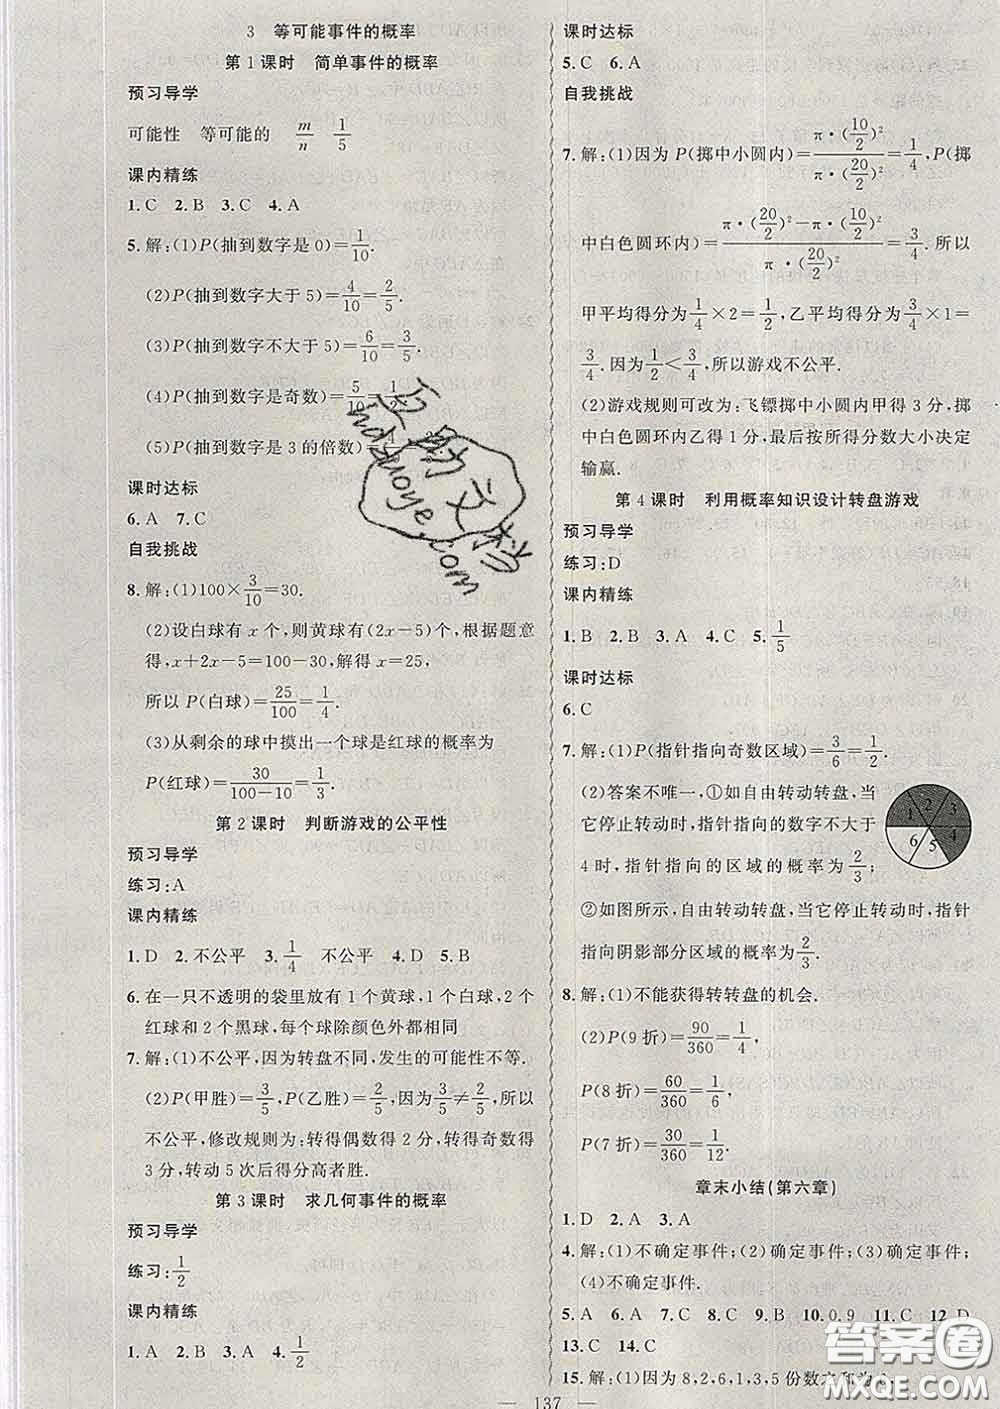 3 等可能事件的概率
第1课时 简单事件的概率
预习导学
可能性 等可能的 m/n 1/5
课内精练
1.C 2.B 3.C 4.A
5.解:(1)P(抽到数字是0)=1/10.
(2)P(抽到数字大于5)=4/10=2/5.
(3)P(抽到数字不大于5)=6/10=3/5.
(4)P(抽到数字是奇数)=5/10=1/2.
(5)P(抽到数字是3的倍数)=
课时达标
6.A 7.C
自我挑战
8.解:(1)100×3/10=30.
(2)设白球有x个,则黄球有(2x-5)个,根据题意
得,x+2x-5=100-30,解得x=25,
所以P(白球)=25/100=1/4.
(3)从剩余的球中摸出一个球是红球的概率为
P(红球)=30/(100-10)=1/3.
第2课时 判断游戏的公平性
预习导学
练习:A
课内精练
1.D 2.不公平 3.1/4 不公平 4.D 5.D
6.在一只不透明的袋里放有1个黄球,1个白球,2个
红球和2个黑球,每个球除颜色外都相同
7.解:(1)不公平,因为转盘不同,发生的可能性不等.
(2)P(甲胜)=3/5,P(乙胜)=2/5,因为3/5≠2/5,所以
不公平,修改规则为:转得偶数得2分,转得奇数得
3分,转动5次后得分高者胜.
第3课时 求几何事件的概率
预习导学
练习:1/2
课内精练
1.A 2.B 3.A 4.1/2
课时达标
5.C 6.A
自我挑战
7.解:(1)因为P(掷中小圆内)=π·(10/2)²/π·(20/2)²=1/4,P(掷
中白色圆环内)=π·(20/2)²-π·(10/2)²/π·(20/2)²=3/4.所以
甲平均得分为1/4×2=1/2,乙平均得分为3/4×1=
3/4.因为1/2<3/4,所以游戏不公平.
(2)游戏规则可改为:飞镖掷中小圆内甲得3分,掷
中白色圆环内乙得1分,最后按所得分数大小决定
输赢.
第4课时 利用概率知识设计转盘游戏
预习导学
练习:D
课内精练
1.B 2.B 3.A 4.C 5.1/5
课时达标
6.C
7.解:(1)P(指针指向奇数区域)=3/6=1/2.
(2)答案不唯一,①如自由转动转盘,当
它停止转动时,指针指向的数字不大于
4时,指针指向的区域的概率为2/3;
1 2 3
6 5 4
②如图所示,自由转动转盘,当它停止转动时,指针
指向阴影部分区域的概率为2/3.
8.解:(1)不能获得转转盘的机会.
(2)P(9折)=90/360=1/4,
P(8折)=60/360=1/6,
P(7折)=30/360=1/12.
章末小结(第六章)
1.D 2.A 3.A
4.解:(1)不确定事件;(2)确定事件;(3)确定事件;
(4)不确定事件.
5.A 6.A 7.C 8.B 9.B 10.0.9 11.C 12.D
13.C 14.C
15.解:(1)因为8,2,6,1,3,5份数之和为6,
137
答案圈
MXQE.COM